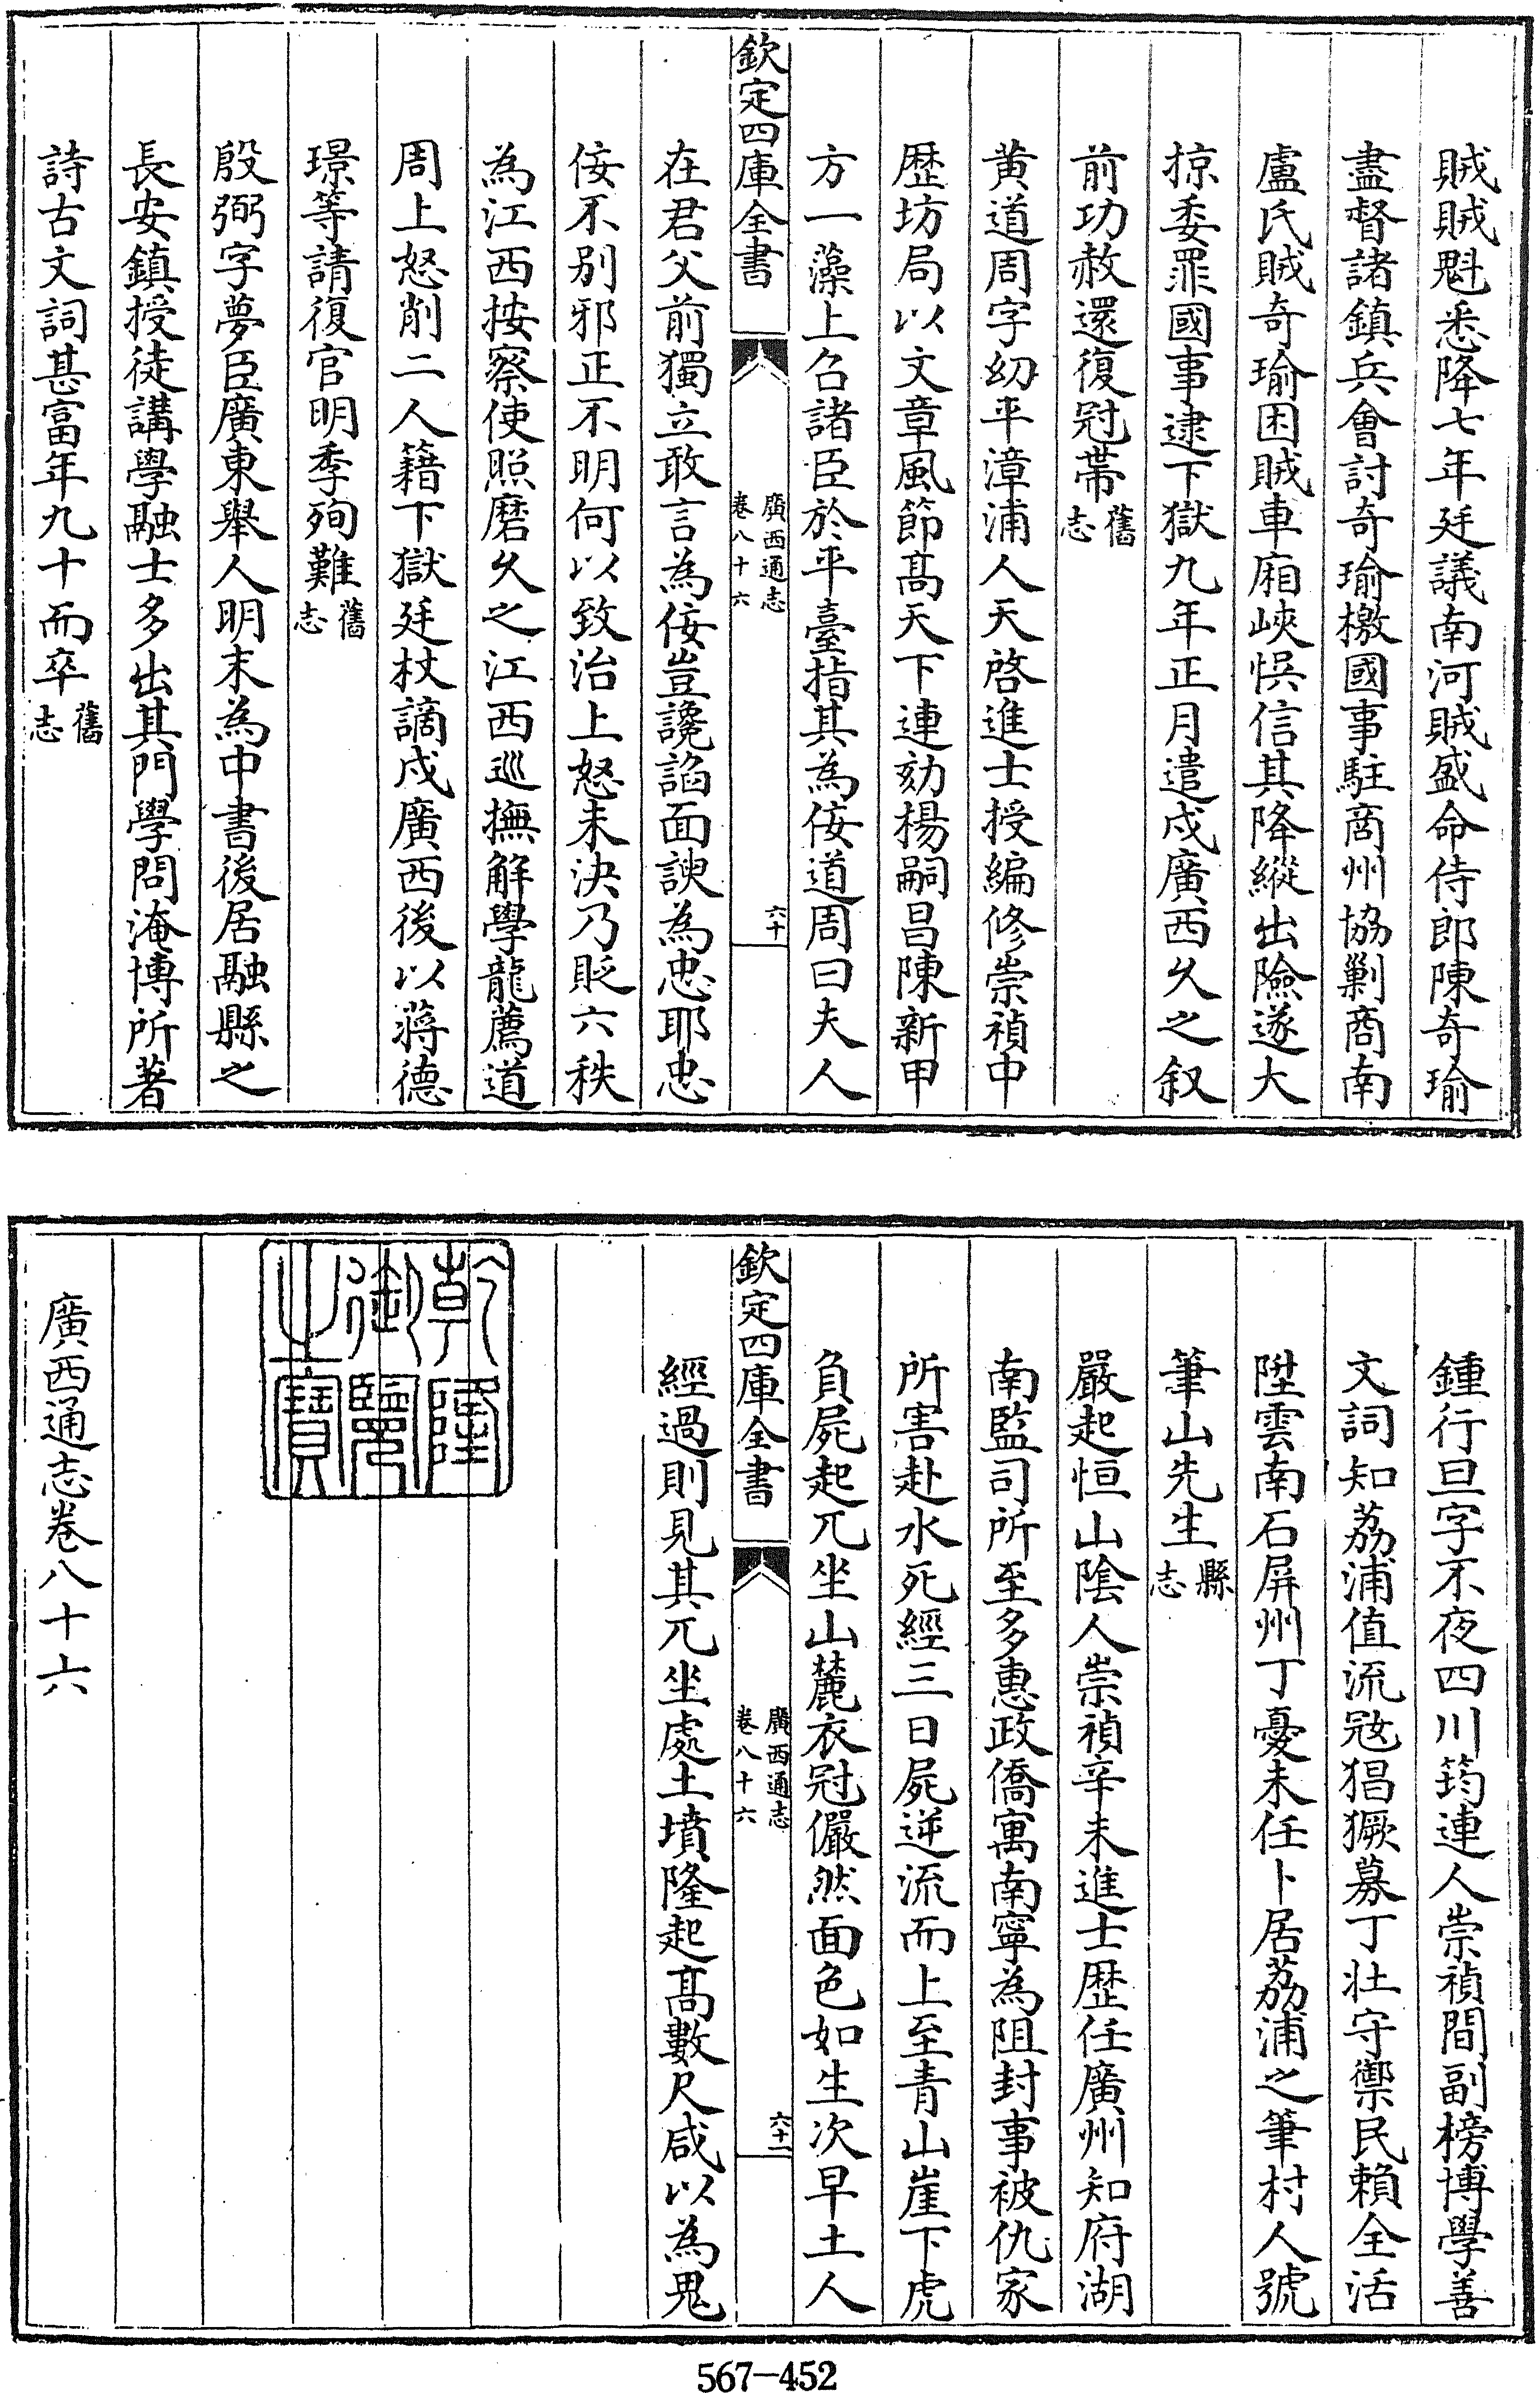 賊賊魁悉降七年廷議南河賊盛命侍郎陳奇瑜
盡督諸鎮兵會討奇瑜檄國事駐商州協剿商南
盧氏賊奇瑜困賊車廂峽悮信其降縱出險遂大
掠委罪國事逮下獄九年正月遣戍廣西久之叙
前功赦還復冠帶舊志
黄道周字幼平漳浦人天啓進士授編修崇禎中
歴坊局以文章風節髙天下連劾楊嗣昌陳新甲
方一藻上召諸臣於平臺指其為佞道周曰夫人
欽定四庫全書
廣西通志
卷八十六
六十
在君父前獨立敢言為佞豈讒諂面諛為忠耶忠
佞不别邪正不明何以致治上怒未決乃貶六秩
為江西按察使照磨久之江西巡撫解學龍薦道
周上怒削二人籍下獄廷杖謫戍廣西後以蔣德
璟等請復官明季殉難舊志
殷弼字夢臣廣東舉人明末為中書後居融縣之
長安鎮授徒講學融士多出其門學問淹博所著
詩古文詞甚富年九十而卒舊志
鍾行旦字不夜四川筠連人崇禎間副榜博學善
文詞知荔浦值流寇猖獗募丁壯守禦民賴全活
陞雲南石屏州丁憂未任卜居荔浦之筆村人號
筆山先生縣志
嚴起恒山陰人崇禎辛未進士歴任廣州知府湖
南監司所至多惠政僑寓南寧為阻封事被仇家
所害赴水死經三日屍逆流而上至青山崖下虎
負屍起兀坐山麓衣冠儼然面色如生次早土人
欽定四庫全書
廣西通志
卷八十六
六十一
經過則見其兀坐處土墳隆起髙數尺咸以為鬼
乾隆
御覽
之寶
廣西通志卷八十六
567-452